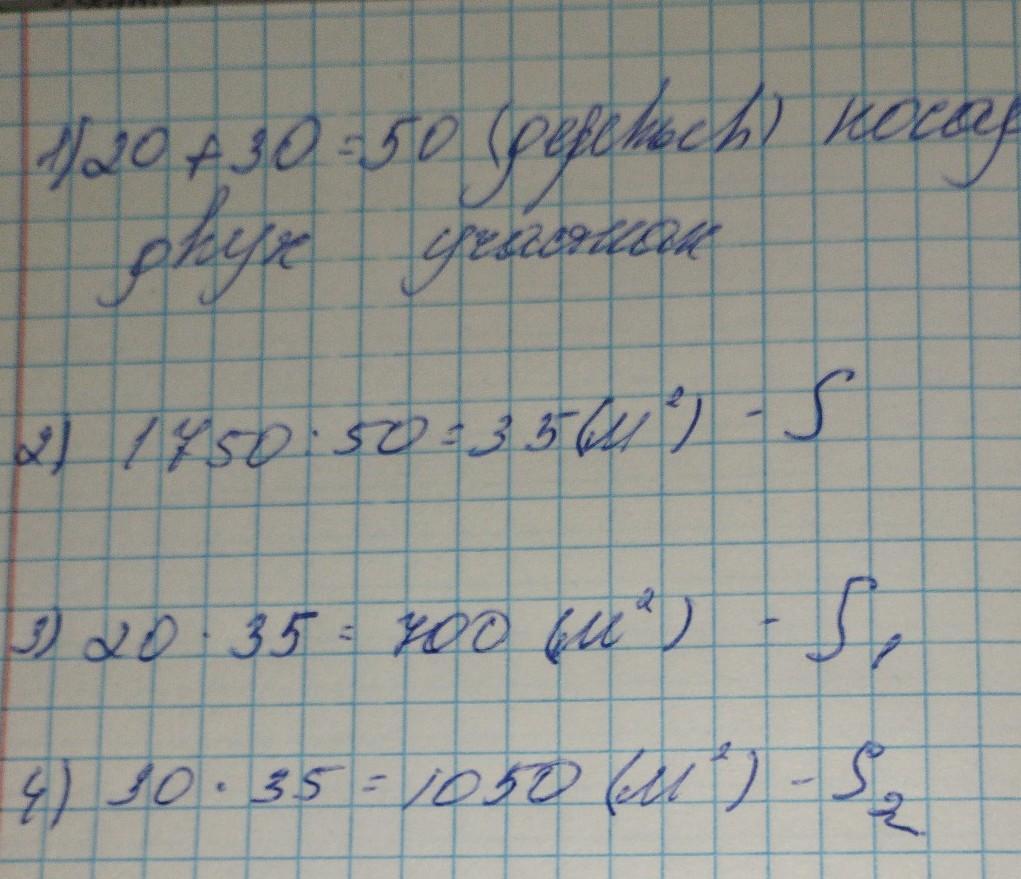 1) 20 + 30 = 50 (деревьев) посад
двух участках
2) 1750 : 50 = 35 (м²) - S
3) 20 · 35 = 700 (м²) - S₁
4) 30 · 35 = 1050 (м²) - S₂